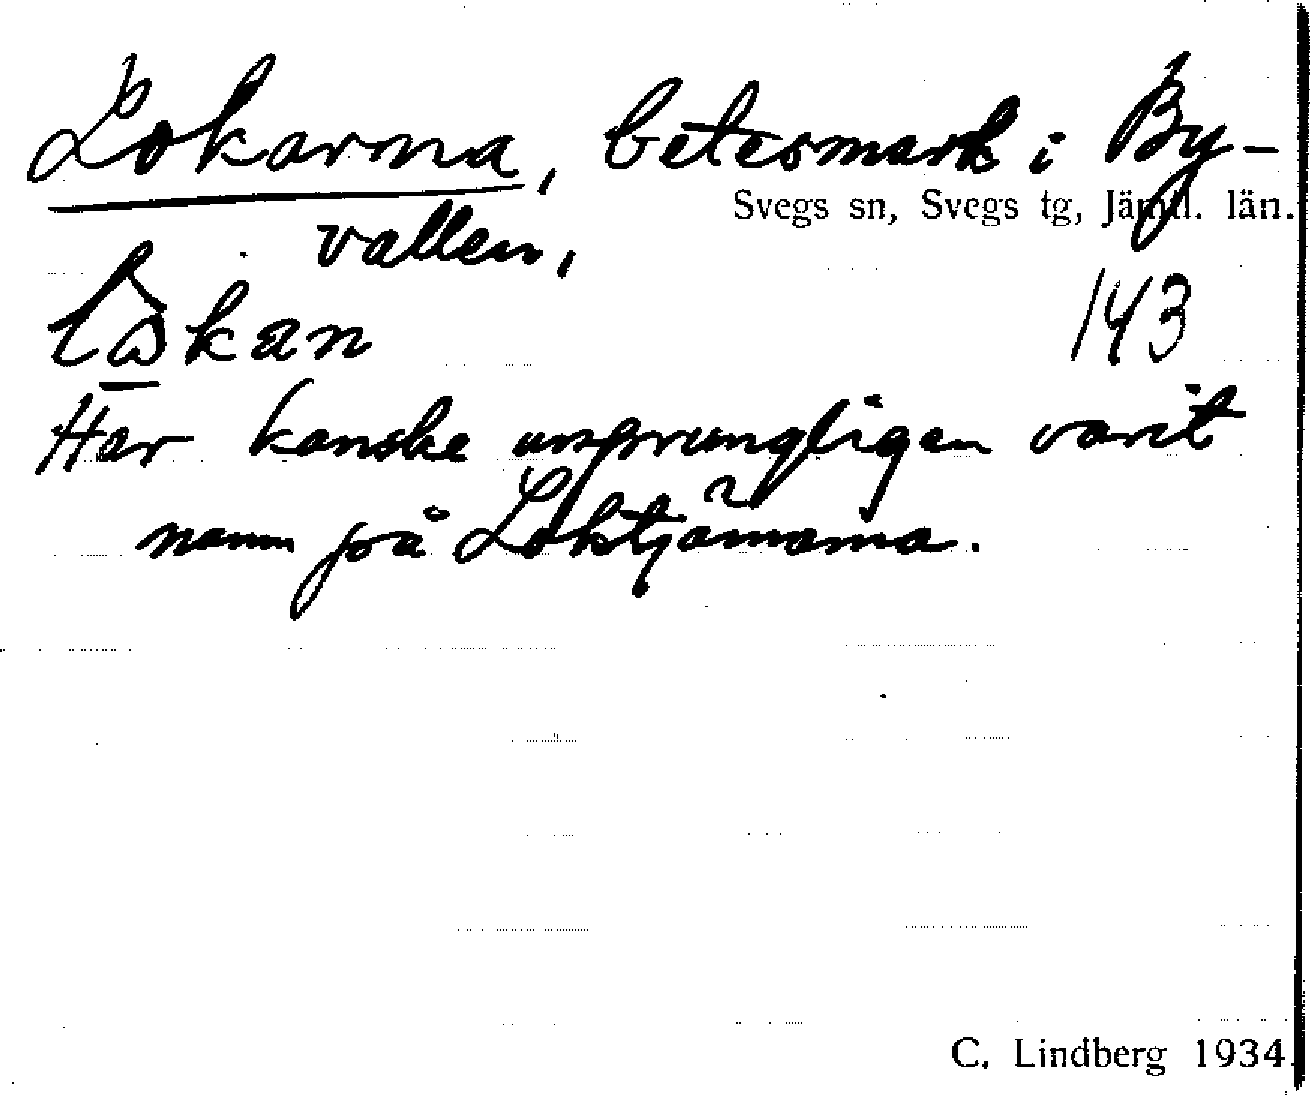 Lokarna, betesmark i By-
Svegs sn, Svegs tg, Jämtl. län.
vallen,
143
Har kanske ursprungligen varit
namn på Loktjärnarna.
C. Lindberg 1934.